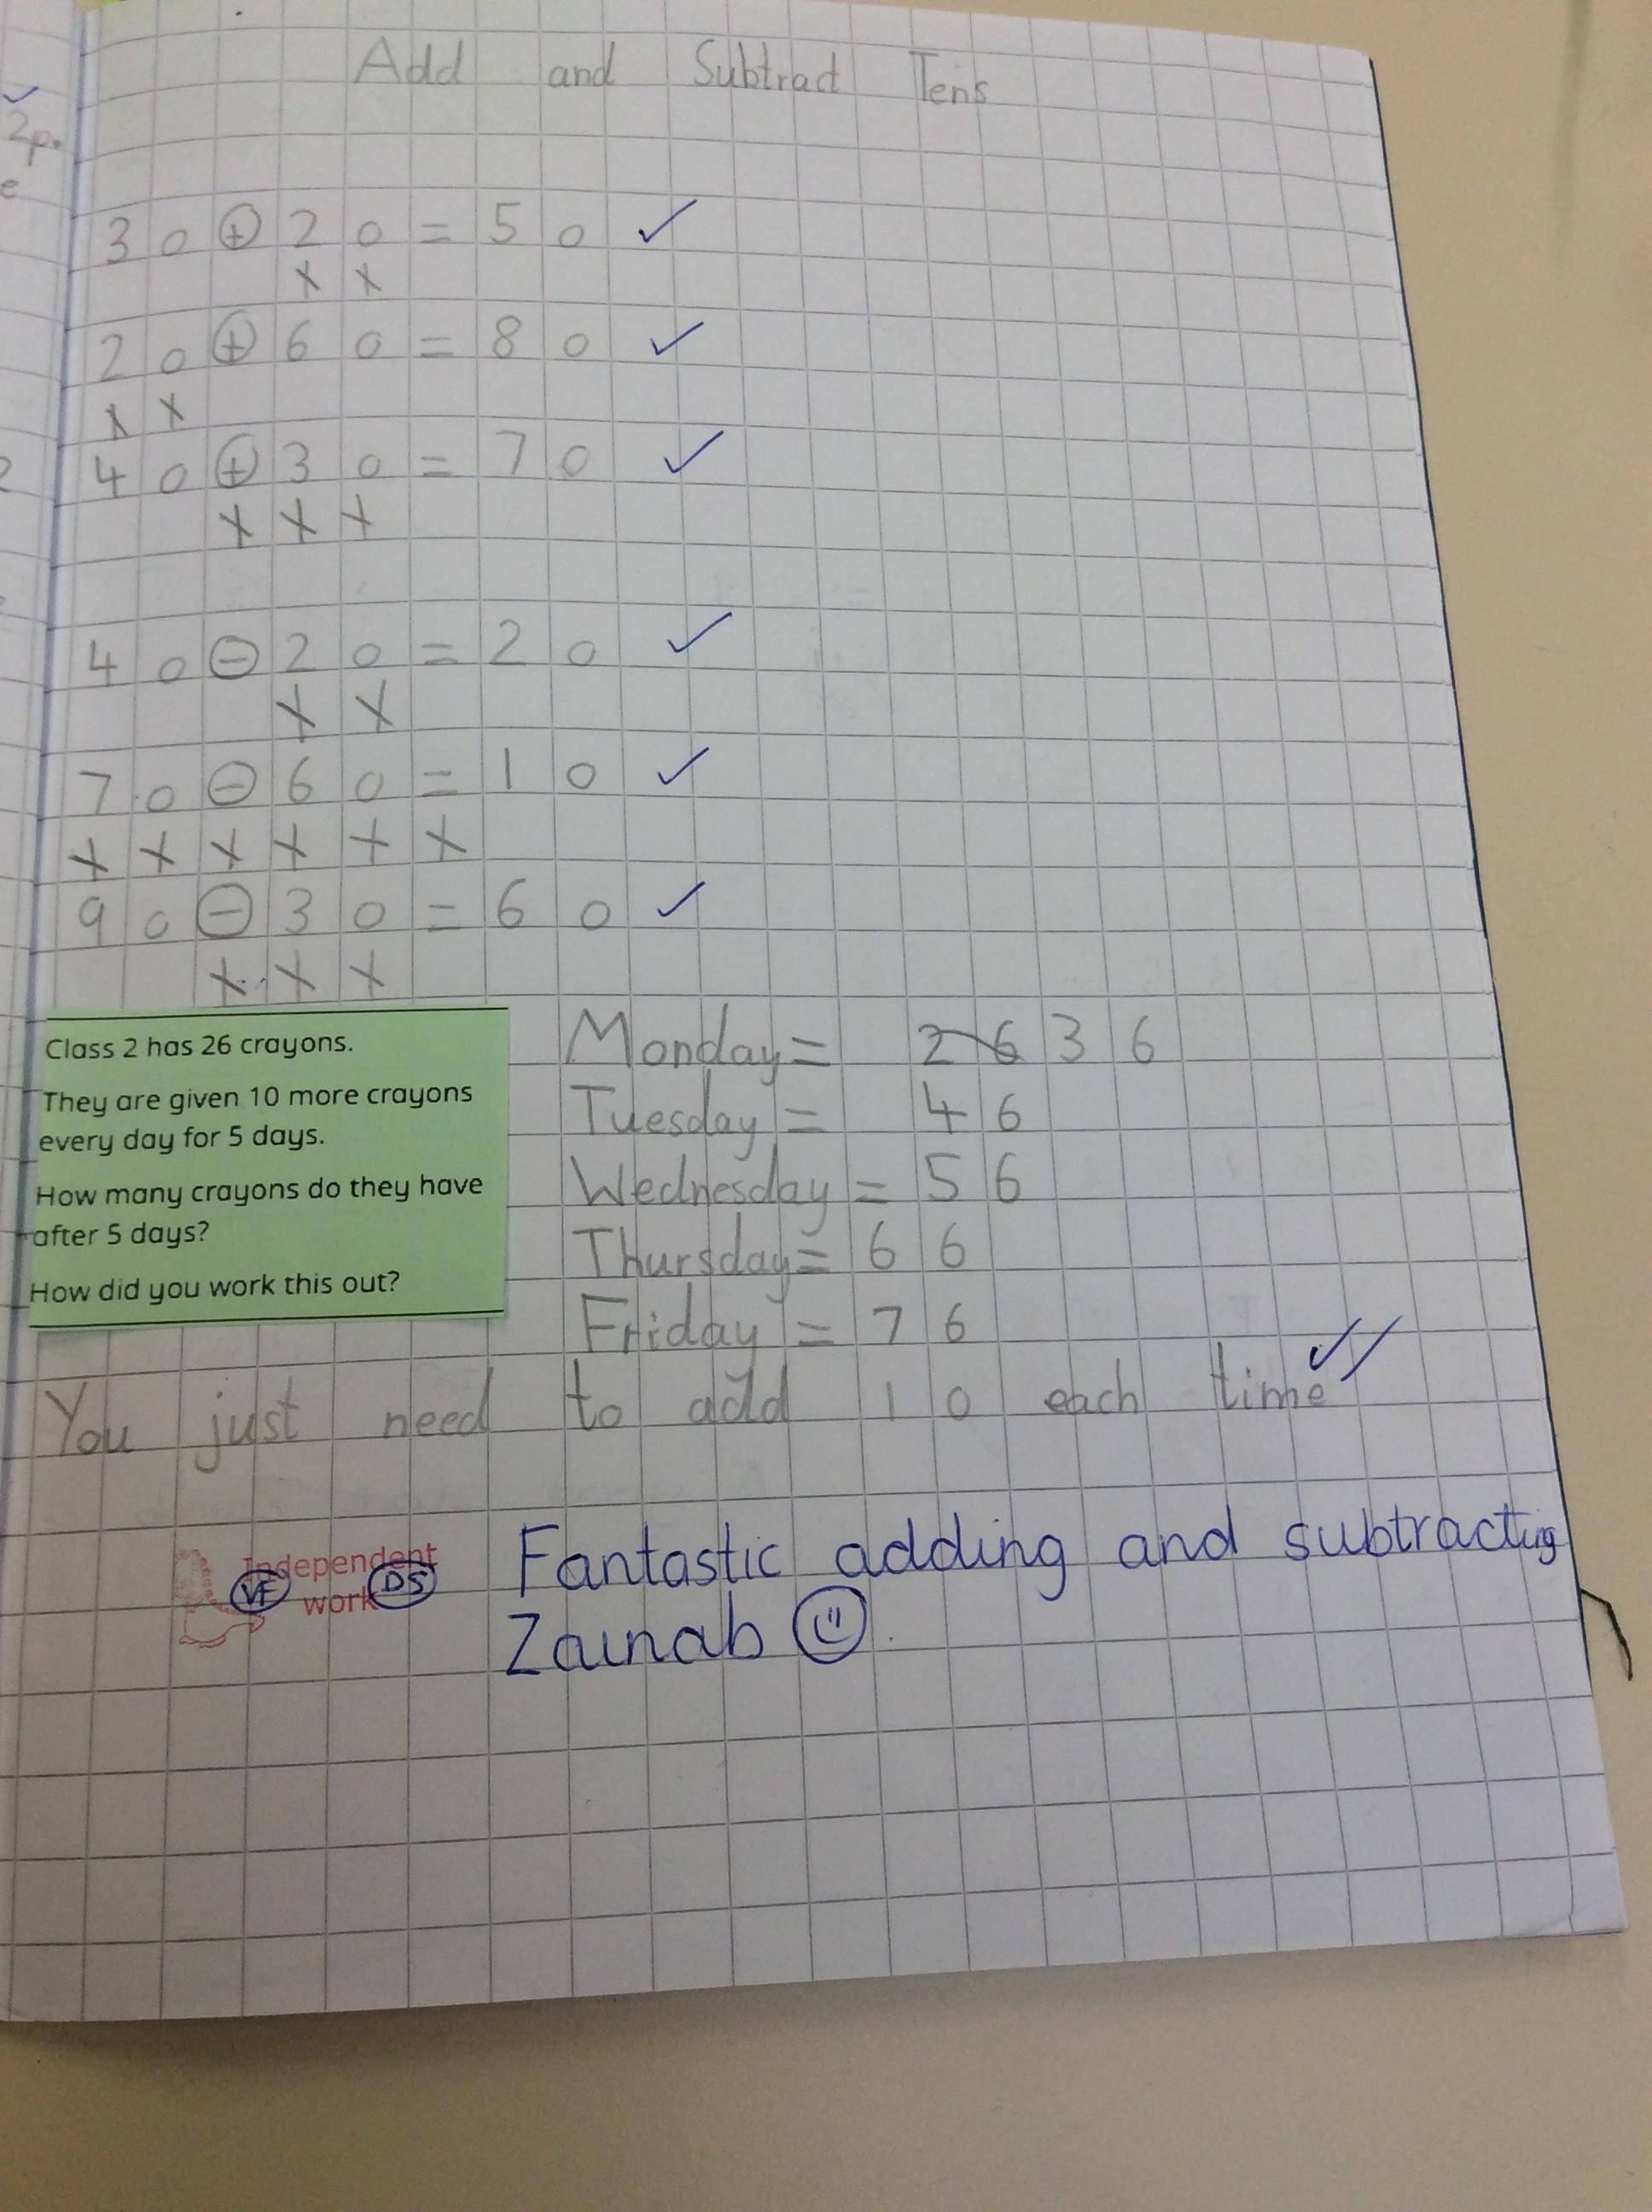 Add and Subtract Tens
2p.
e
30 + 20 = 50 ✓
x x
20 + 60 = 80 ✓
x x
40 + 30 = 70 ✓
x x x
40 - 20 = 20 ✓
x x
70 - 60 = 10 ✓
x x x x x x
90 - 30 = 60 ✓
x x x
Class 2 has 26 crayons.
They are given 10 more crayons
every day for 5 days.
How many crayons do they have
after 5 days?
How did you work this out?
Monday = 26 36
Tuesday = 46
Wednesday = 56
Thursday = 66
Friday = 76
You just need to add 10 each time ✓✓
Independent
work
VF DS
Fantastic adding and subtracting
Zainab